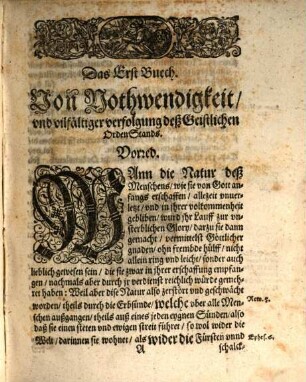 Das Erst Buech.
Von Nothwendigkeit/
vnd vilfältiger verfolgung deß Geistlichen
Orden Stands.
Vorred.
WAnn die Natur deß
Menschens/ wie sie von Gott an-
fangs erschaffen/ allezeit vnuer-
letzt/ vnd in jhrer vollkommenheit
gebliben/ wurd jhr Lauff zur vn-
sterblichen Glory/ darzu sie dann
gemacht/ vermittelst Göttlicher
gnaden/ ohn frembde hülff/ nicht
allein ring vnd leicht/ sonder auch
lieblich gewesen sein/ die sie zwar in jhrer erschaffung empfan-
gen/ nachmals aber durch jr verdienst reichlich würde gemeh-
ret haben: Weil aber dise Natur also zerstört vnd geschwächt
worden/ theils durch die Erbsünde/ welche vber alle Men- Rom. 5.
schen außgangen/ theils auß eines jeden eygnen Sünden/ also
daß sie einen steten vnd ewigen streit führet/ so wol wider die
Welt/ darinnen sie wohnet/ als wider die Fürsten vnnd Ephes. 6.
A schalck-